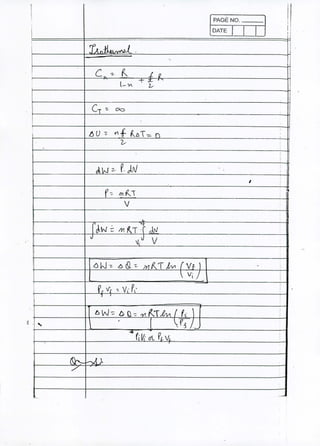 PAGE NO.
DATE
Isothermal
Cₙ = R/(1-n) + f/2 R
C_T = ∞
ΔU = n f/2 RΔT = 0
dW = P. dV
P = nRT/V
∫dW = nRT ∫_{Vi}^{Vf} dV/V
ΔW = ΔQ = nRT ln (Vf/Vi)
Pf Vf = Vi Pi
ΔW = ΔQ = nRT ln (Pi/Pf)
* PiVi or Pf Vf